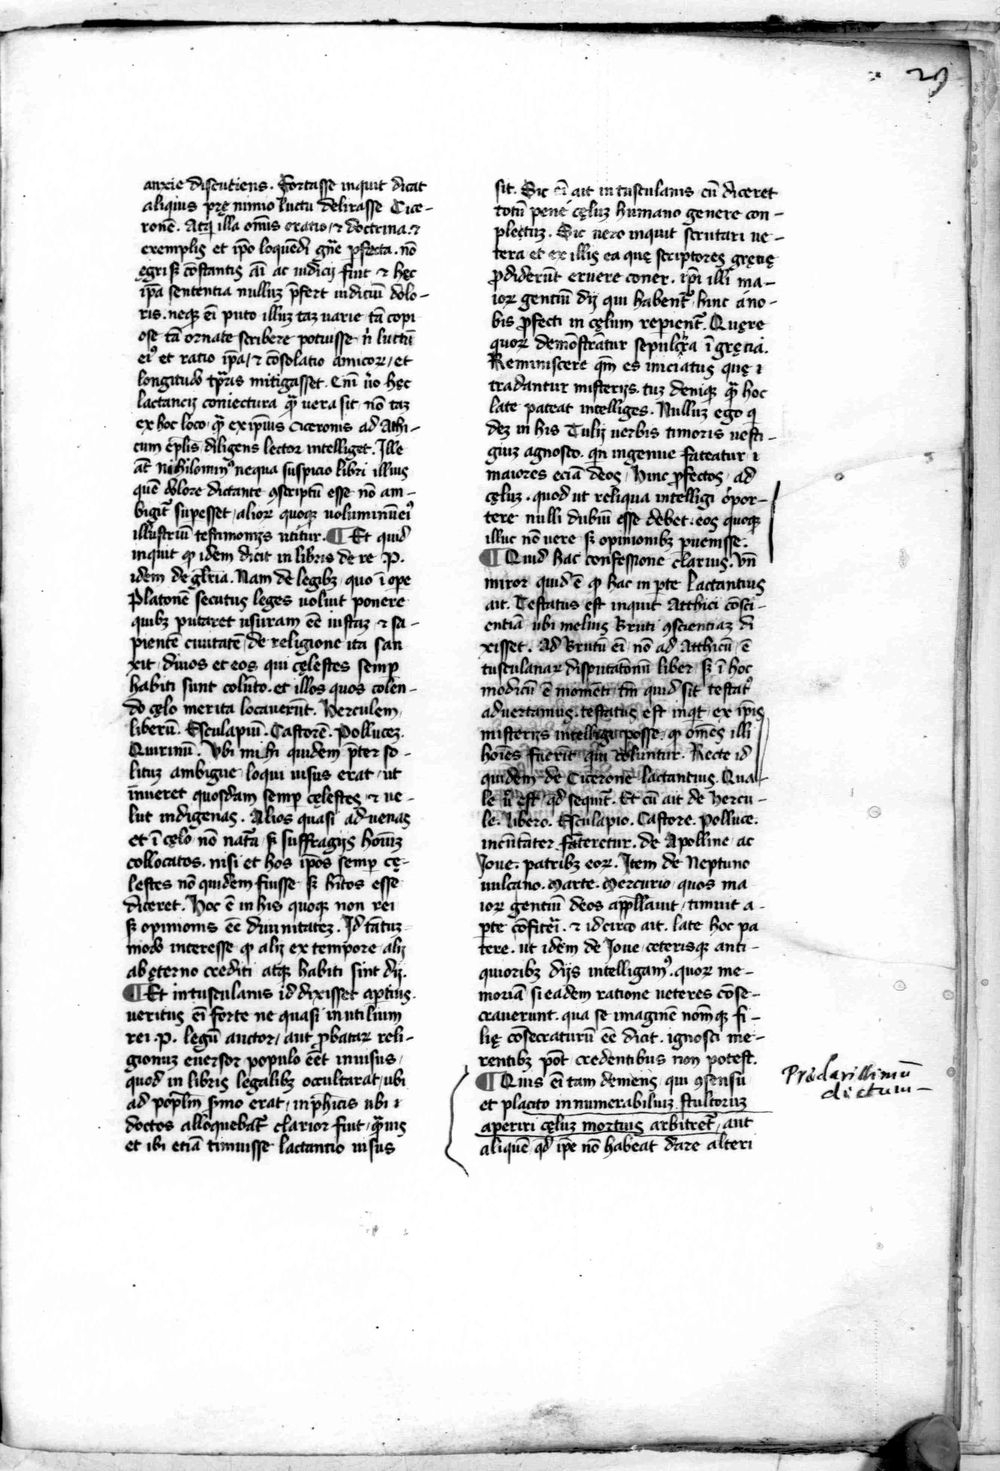 29
anxie discutiens. Fortasse inquit dicat
aliquis prę nimio luctu delirasse Cice-
ronē. Atq̨ illa om̄is oratio / ⁊ doctrina. ⁊
exemplis et ip̄o loquēdi gn̄e ꝑfecta. nō
ęgri sꝫ cōstantis aīi ac iudicij fuit ⁊ hęc
ip̄a sententia nulluꝫ p̄fert indiciū dolo-
ris. neqꝫ em̄ puto illuꝫ taꝫ uarie tā copi
ose tā ornate scribere potuisse n̄ luctū
eiꝰ et ratio ip̄a / ⁊ cōsolatio amicoꝝ / et
longitudo tꝑis mitigasset. Cui ūo hęc
lactancij coniectura qꝫ uera sit nō taꝫ
ex hoc loco qꝫ ex ip̄ius Ciceronis ad Athi-
cum ep̄lis diligens lector intelliget. Ille
at̄ nihilominꝰ nequa suspicio libri illius
quē dolore dictante ꝯscriptū esse nō am-
bigit̄ suꝑesset / alioꝝ quoqꝫ uoluminū eiꝰ
illustriū testimonijs utitur. ¶ Et quid
inquit ꝙ idem dicit in libris de re P.
idem de gl̄ria. Nam de legibꝫ quo ī oꝑe
Platonē secutus leges uoluit ponere
quibꝫ putaret usuram eē iustaꝫ ⁊ sa-
pientē ciuitatē de religione ita san
xit / diuos et eos qui cęlestes semꝑ
habiti sunt colunto. et illos quos colen-
do cęlo merita locauerūt. Herculem
liberū. Esculapiū. Castorē. Pollucē.
Quirinū. Vbi mihi quidem p̄ter so-
lituꝫ ambigue loqui uisus erat / ut
inueret quosdam semꝑ cęlestes ⁊ ue-
lut indigenas. Alios quasi aduenas
et ī cęlo nō nat̄a sꝫ suffragijs hoīuꝫ
collocatos. nisi et hos ip̄os semꝑ cę-
lestes nō quidem fuisse sꝫ hītos esse
diceret. Hoc ē in his quoqꝫ non rei
sꝫ opinionis eē diuinitateꝫ. Id tantuꝫ-
modo interesse ꝙ alij ex tempore alij
ab ęterno crediti atqꝫ habiti sint dij.
¶ Et in tusculanis id dixisset aꝑtius.
ueritus em̄ forte ne quasi inutilium
rei P. legū auctor / aut ꝓbataꝝ reli-
gionuꝫ euersor populo eēt inuisus /
quod in libris legalibꝫ occultarat / ubi
ad pop̄lm sermo erat / in ph̄icis ubi ī
doctos alloquebat̄ clarior fuit / qꝫuis
et ibi etiā timuisse lactantio uisus
sit. Sic em̄ ait in tusculanis cū diceret
totū pene cęluꝫ humano genere con-
pletuꝫ. Sic uero inquit scrutari ue-
tera et ex illis ea quę scriptores gręcię
ꝓdiderūt eruere coner. ip̄i illi ma-
ioꝝ gentiū dij qui habent̄ hinc a no-
bis ꝓfecti in cęlum reꝑient̄. Quęre
quoꝝ demōstratur sepulchra ī gręcia.
Reminiscere qm̄ es iniciatus quę ī
tradantur misterijs. tuꝫ deniqꝫ qꝫ hoc
late pateat intelliges. Nulluꝫ ego q̄
deꝫ in his Tulij uerbis timoris uesti-
giuꝫ agnosco. qn ingenue fateatur ī
maiores eciā deos / hinc ꝓfectos / ad
cęluꝫ. quod ut reliqua intelligi opor-
tere nulli dubiū esse debet. eos quoqꝫ
illuc nō uere sꝫ opinionibꝫ ꝑuenisse.
¶ Quid hac confessione clarius. Vn̄
miror quid ē ꝙ hac in ꝑte Lactantius
ait. Testatus est inquit Atthici cōsci-
entiā ubi melius Bruti ꝯscientiaꝫ di
xisset. Ad Brutū em̄ nō ad Atthicū ē
tusculanaꝝ disputationū liber sꝫ ī hoc
modicū ē momēti tm̄ quid sit testatꝰ
aduertamus. testatus est inqt ex ip̄is
misterijs intelligi posse ꝙ omēs illi
hoīes fuerīt qui coluntur. Recte id
quidem de Cicerone lactantius. Qua-
le ū est / ad sequit̄. Et cū ait de Hercu-
le. libero. Esculapio. Castore. Polluce.
incūtanter fateretur. de Apolline / ac
Ioue. patribꝫ eoꝝ. Item de Neptuno
uulcano. Marte. Mercurio / quos ma
ioꝝ gentiū deos appellauit / timuit a-
ꝑte cōfiteri. ⁊ idcirco ait. late hoc pa
tere. ut idem de Ioue ceterisqꝫ anti-
quioribꝫ dijs intelligamꝰ. quoꝝ me-
moriā si eadem ratione ueteres cōse-
crauerunt. qua se imaginē nom̄qꝫ fi-
lię cōsecraturū eē dicit. ignosci me-
rentibꝫ pōt credentibus non potest.
¶ Quis em̄ tam demens / qui ꝯsensu
et placito innumerabiliuꝫ stultoruꝫ
aperiri cęluꝫ mortuis arbitret̄ / aut
aliquē qd̄ ip̄e nō habeat dare alteri
Preclarissimum
dictum